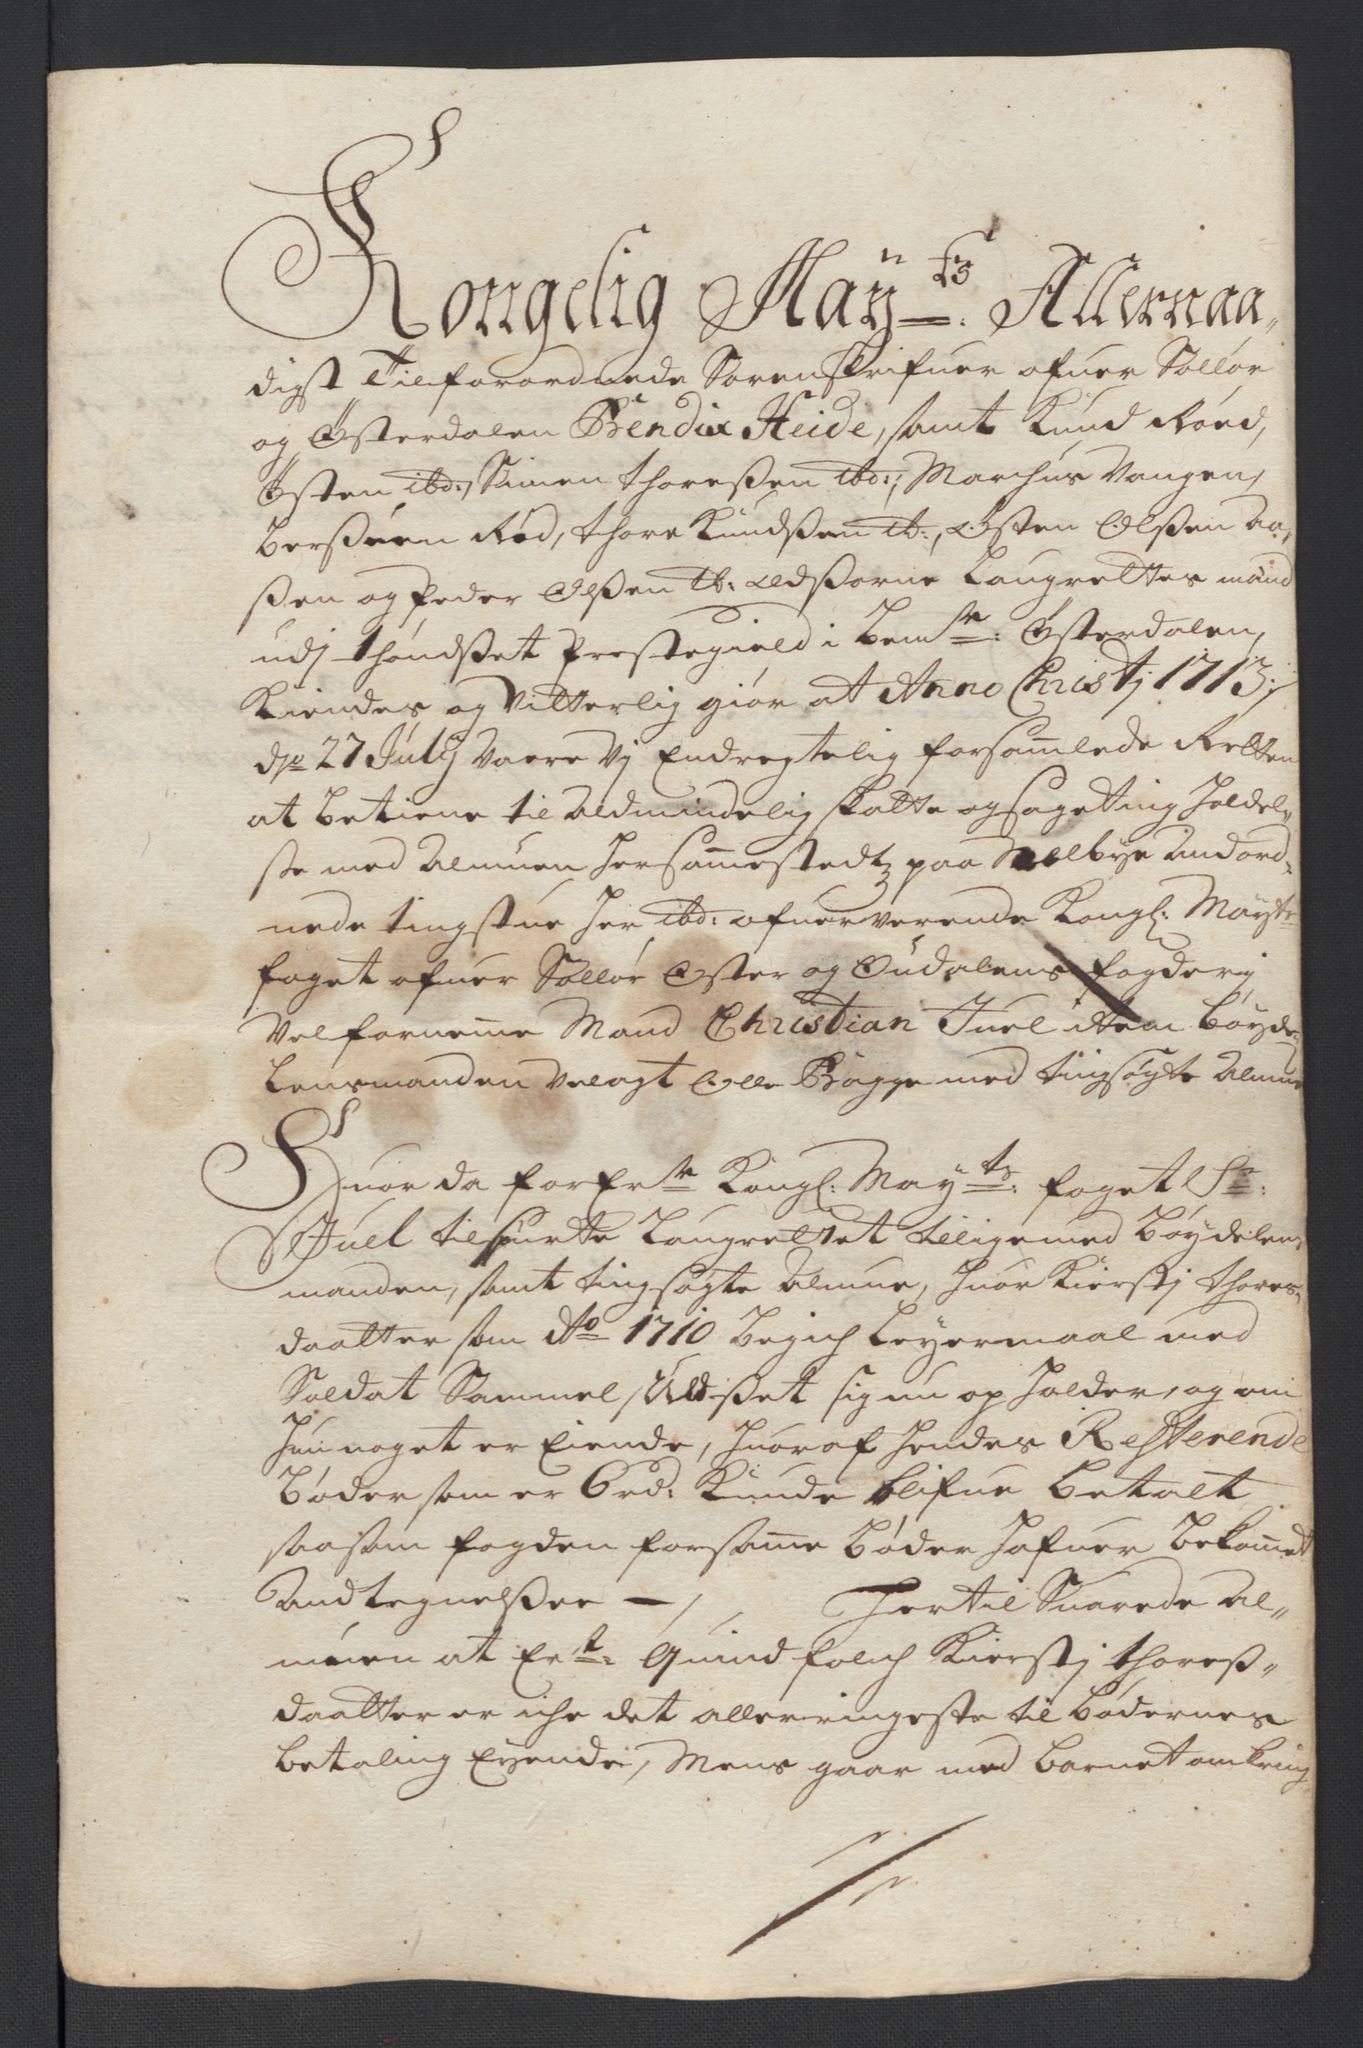 Kongelig Maÿ:ts Allernaa„
digst Tilforordnede Sorenskrifuer ofuer Sollør
og Østerdalen Bendix Heide, samt Knud Røed,
Østen ibd:, Simen Thoreßen ibd:, Marchus Vangen,
Berßuen Rød, Thore Knudßen ib:, Østen Olßen Aa„
ßen og Peder Olßen ib: Edsorne Laugrettes mænd
udj Thøndset Prestegield i bemte: Østerdalen,
Kiendes og Vitterlig giør at Anno Christj 1713;
dn 27 Julÿ Vaare Vj Endregtelig forsamlede Retten
at betiene til Almindelig skatte og sageting holdel„
ße med Almuen hersammestedtz paa Melbye Andord„
nede tingstue her ibd: ofuerverende Kongl: Mayts
foget ofuer Sollør Øster og Oudalens fogderij
Velfornemme Mand Christian Juel item böyde„
lensmanden Velagt Olle Bagge med tingsøgte Almue
Huor da forErte Kongl: Mayts: foget Sr:
Juel tilspurte Laugrettet tilligemed böydelens
manden, samt tingsøgte Almue, huor Kierstj Thores„
daatter som Ao 1710 begich leyermaal med
Soldat Sammel Udßet sig nu op holder, og om
hun noget er Eiende, huoraf hendes Resterende
bøder som er 6 rd: Kunde blifue betalt
saasom fogden for samme bøder hafuer bekommet
Andtegnelßer — / hertil Suarede Al„
muen at Ert: Quindfolch Kierstj Thoreß„
daatter er iche det allerringeste til bødernes
betaling Eyende, Mens gaar med barnet omkring